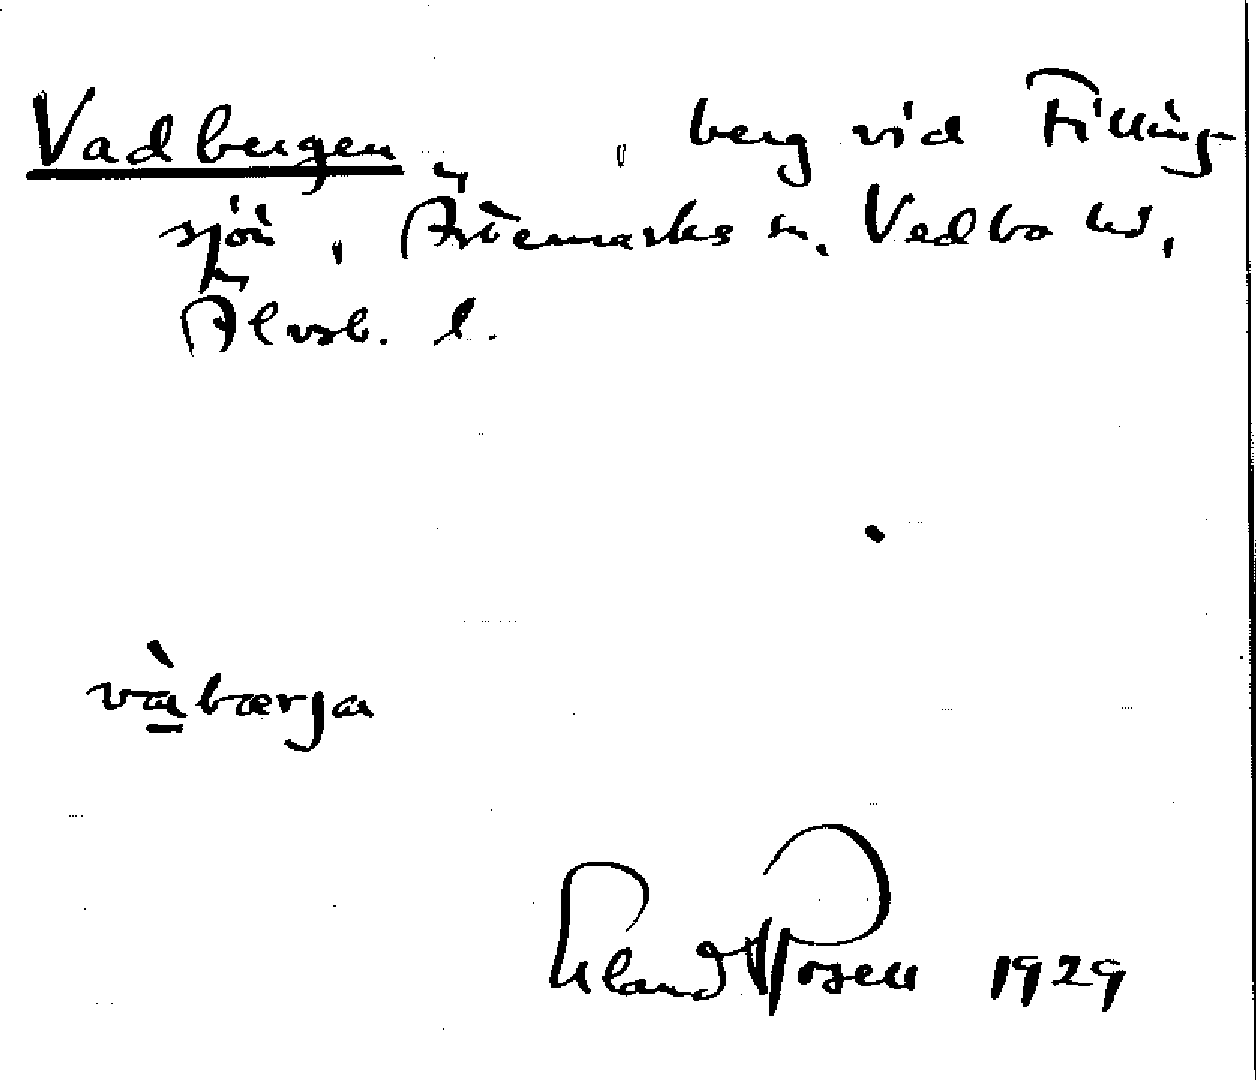 Vadbergen, berg vid Filling-
sjön, Ärtemarks sn. Vedbo hd,
Älvsb. l.
vàbærja
Erland Rosell 1929